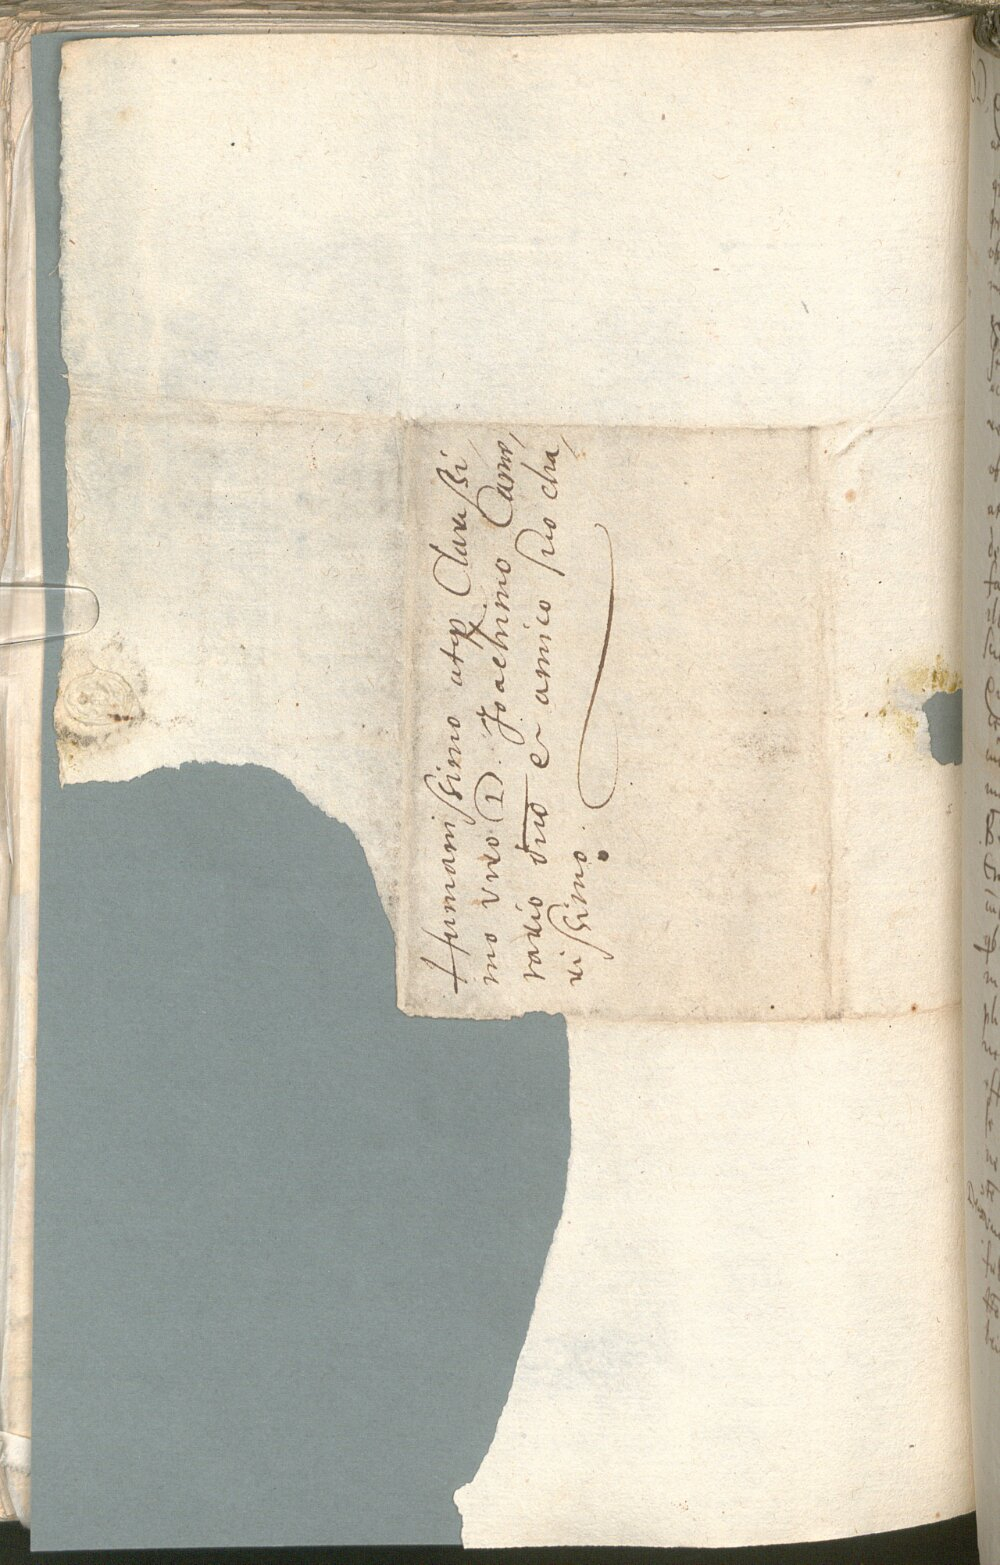 Humanissimo atq; Clarissi,
mo viro D. Joachimo Came,
rario dño et amico suo cha,
rissimo.